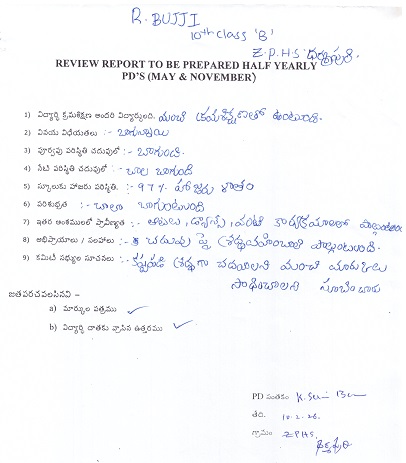 R. BUJJI
10th Class 'B'
Z.P.H.S ధర్మాపురి.
REVIEW REPORT TO BE PREPARED HALF YEARLY
PD'S (MAY & NOVEMBER)
1) విద్యార్థి క్రమశిక్షణ అందరి విద్యార్థులది. మంచి క్రమశిక్షణతో ఉంటుంది.
2) వినయ విధేయతలు :- బాగున్నాయి
3) పూర్వపు పరిస్థితి చదువులో :- బాగుంది.
4) నేటి పరిస్థితి చదువులో :- చాల బాగుంది
5) స్కూలుకు హాజరు పరిస్థితి. :- 97% హాజరు శాతం
6) పరిశుభ్రత :- చాలా బాగుంటుంది
7) ఇతర అంశములలో ప్రావీణ్యత :- ఆటలు, డ్యాన్స్, వంటి కార్యక్రమాలలో పాల్గొంటుంది
8) అభిప్రాయాలు / సలహాలు :- చదువు పై శ్రద్ధ పాల్గొంటుంది.
9) కమిటీ సభ్యుల సూచనలు :- కష్టపడి శ్రద్ధగా చదవాలని మంచి మార్కులు
సాధించాలని సూచించారు
జతపరచవలసినవి –
a) మార్కుల పత్రము ✓
b) విద్యార్థి దాతకు వ్రాసిన ఉత్తరము ✓
PD సంతకం
తేది. 10.2.26.
గ్రామం Z.P.H.S.